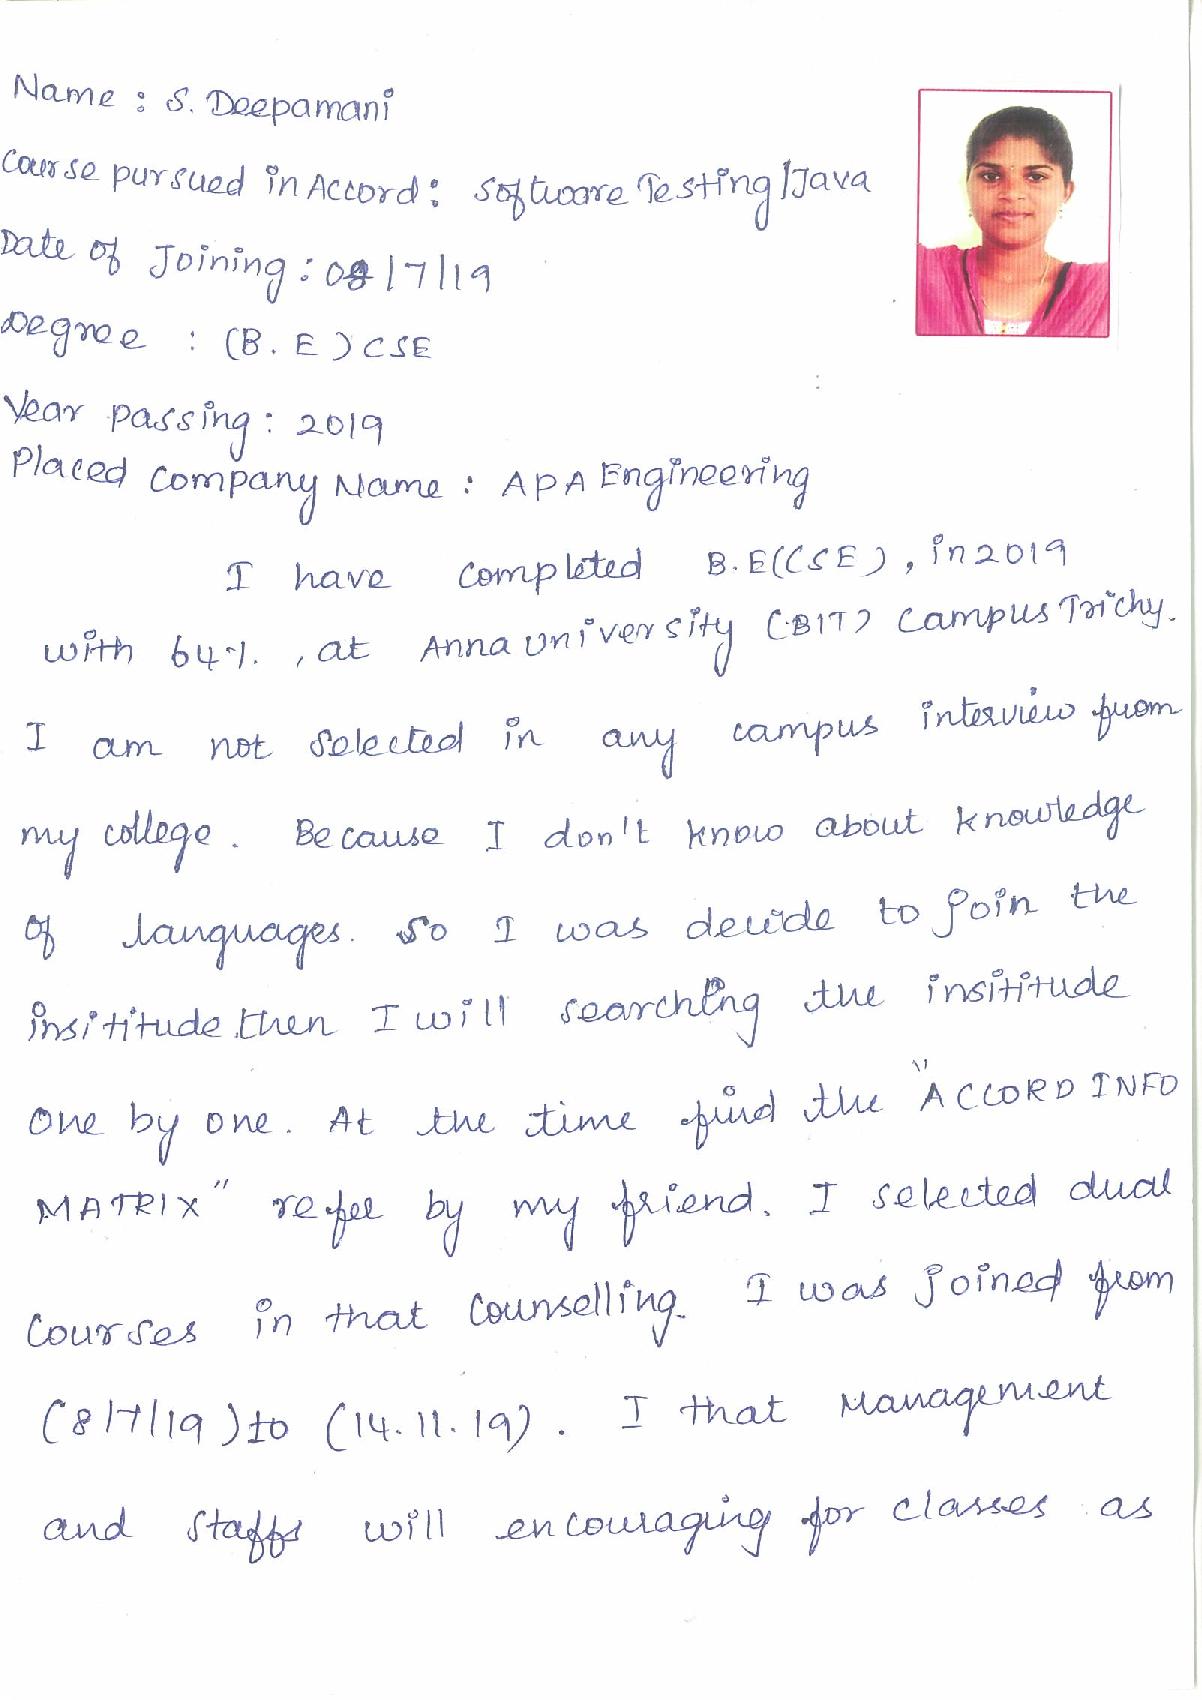 Name : S. Deepamani
Course pursued in Accord : Software Testing/Java
Date of Joining : 08/7/19
Degree : (B.E) CSE
Year passing : 2019
Placed Company Name : APA Engineering
I have completed B.E(CSE), in 2019
with 64%., at Anna University (BIT) Campus Trichy.
I am not selected in any campus interview from
my college. Because I don't know about knowledge
of languages. So I was decide to join the
insititude then I will searching the insititude
One by one. At the time find the "ACCORD INFO
MATRIX" refer by my friend. I selected dual
Courses in that Counselling. I was joined from
(8/7/19) to (14.11.19). I that Management
and Staffs will encouraging for classes as